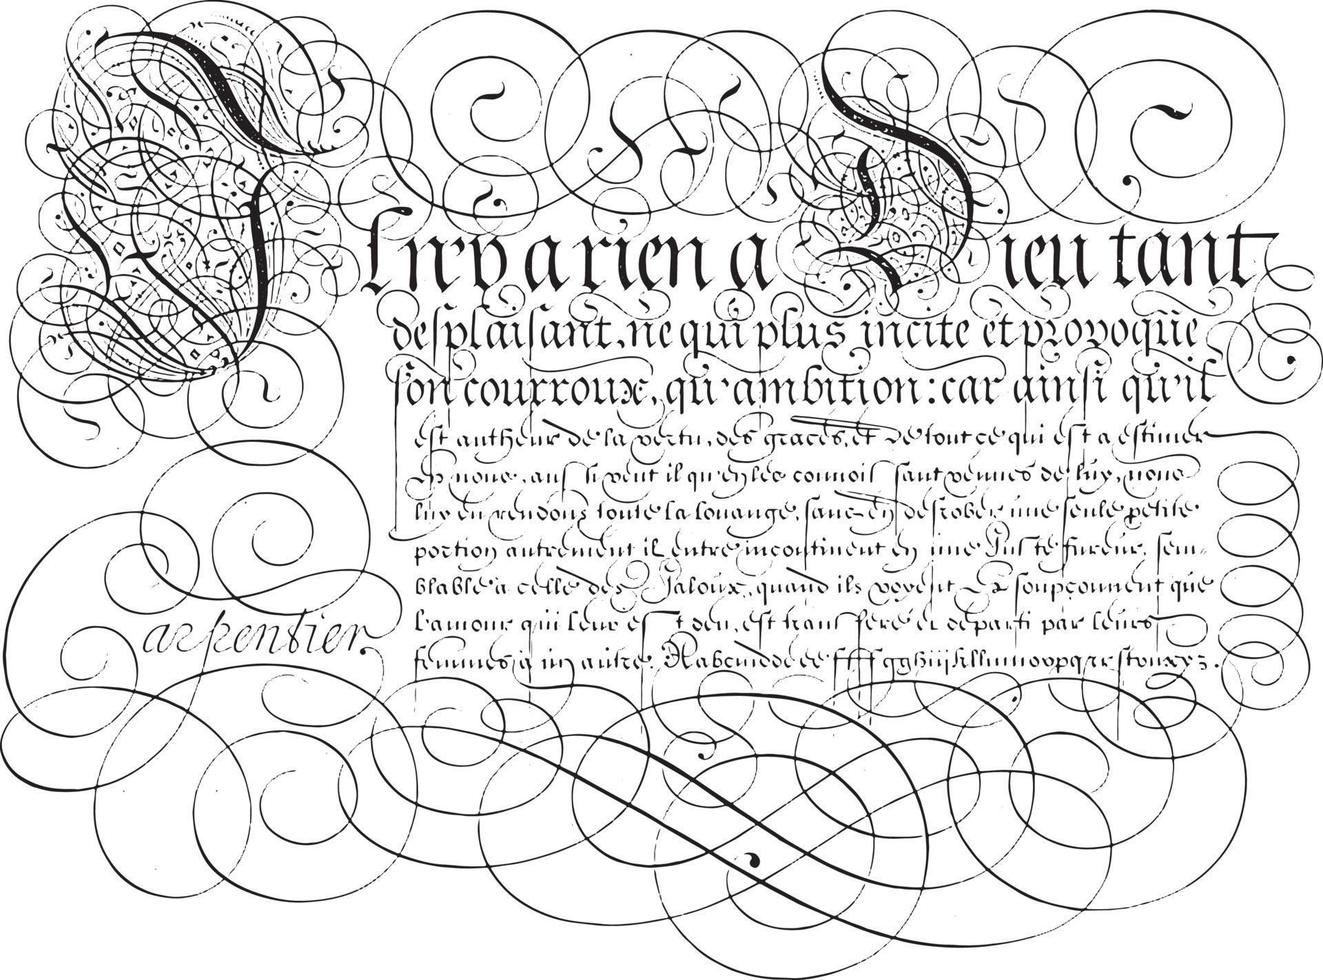 Il n'y a rien a Dieu tant
desplaisant, ne qui plus incite et provoque
son courroux, qu'ambition: car ainsi qu'il
est autheur de la vertu, des graces, et de tout ce qui est a estimer
en nous, aussi veut il qu'en les connoissant venues de luy, nous
luy en rendons toute la louange, sans en desrober une seule petite
portion autrement il entre incontinent en une juste fureur, sem-
blable à celle des Jaloux, quand ils voyent et soupçonnent que
l'amour qui leur est deu, est transferé et departi par leurs
femmes a un autre.
Carpentier